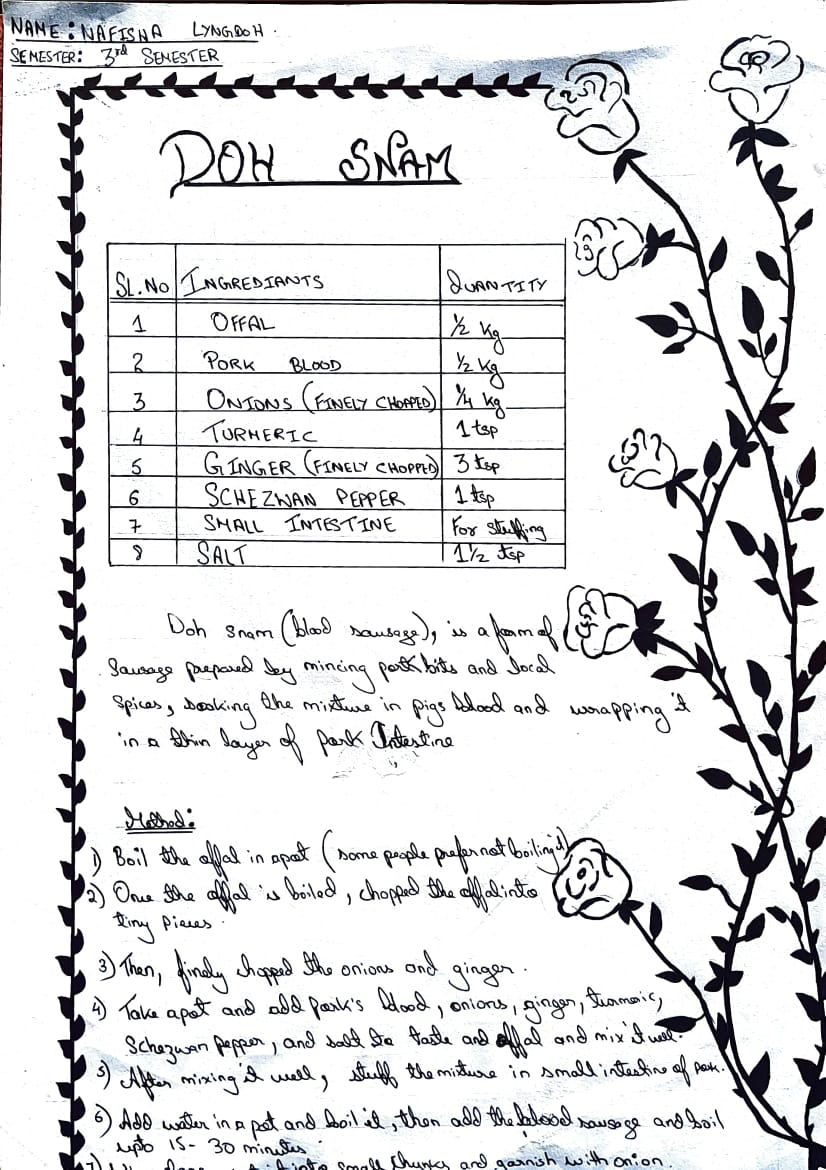 NAME: NAFISHA LYNGDOH.
SEMESTER: 3rd SEMESTER
DOH SNAM
SL.NO INGREDIANTS QUANTITY
1 OFFAL ½ Kg
2 PORK BLOOD ½ Kg
3 ONIONS (FINELY CHOPPED) ¼ Kg
4 TURMERIC 1 tsp
5 GINGER (FINELY CHOPPED) 3 tsp
6 SCHEZWAN PEPPER 1 tsp
7 SMALL INTESTINE For stuffing
8 SALT 1½ tsp
Doh snam (blood sausage), is a form of
Sausage prepared by mincing pork bits and local
Spices, soaking the mixture in pigs blood and wrapping it
in a thin layer of pork Intestine
Method:
1) Boil the offal in a pot (some people prefer not boiling it)
2) Once the offal is boiled, chopped the offal into
tiny pieces.
3) Then, finely chopped the onions and ginger.
4) Take a pot and add pork's blood, onions, ginger, turmeric,
Schezwan pepper, and salt to taste and offal and mix it well.
5) After mixing it well, stuff the mixture in small intestine of pork.
6) Add water in a pot and boil it, then add the blood sausage and boil
upto 15-30 minutes.
7) it into small chunks and garnish with onion.